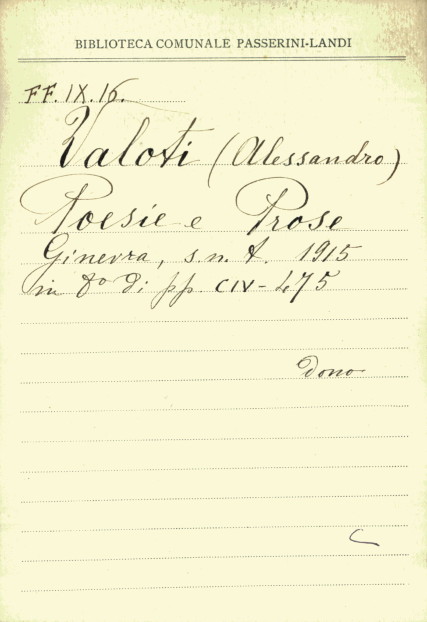 BIBLIOTECA COMUNALE PASSERINI-LANDI
FF. IX. 16.
Valoti (Alessandro)
Poesie e Prose
Ginevra, s. n. t. 1915
in 8º di pp. CIV-475
Dono